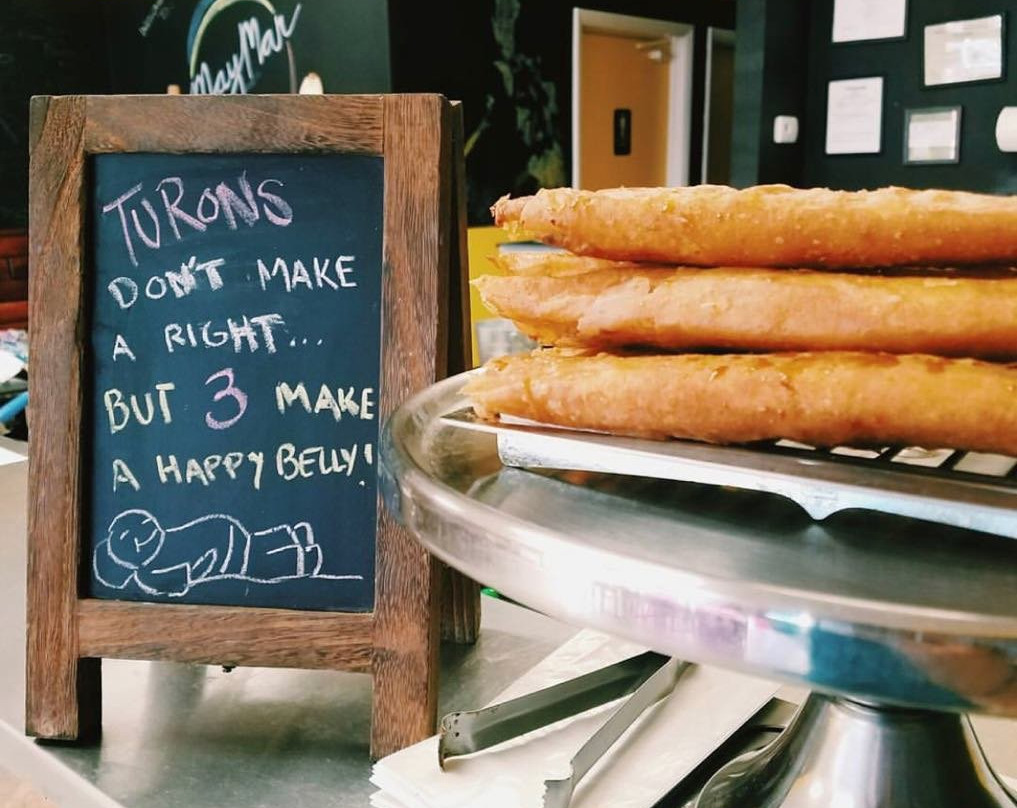 MayMar
TURONS
DON'T MAKE
A RIGHT...
BUT 3 MAKE
A HAPPY BELLY!